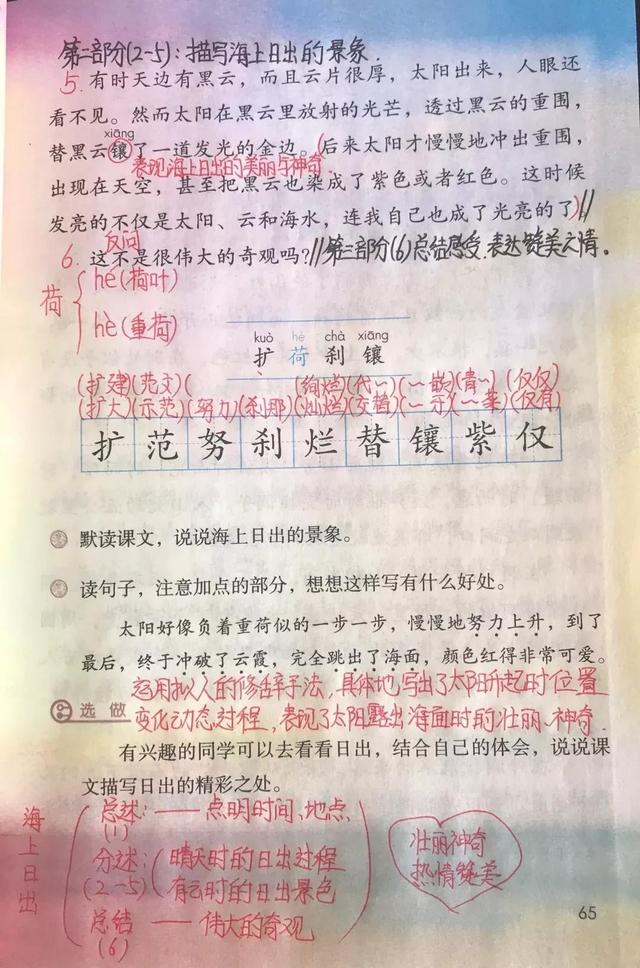 第二部分(2-5):描写海上日出的景象.
5. 有时天边有黑云,而且云片很厚,太阳出来,人眼还
看不见。然而太阳在黑云里放射的光芒,透过黑云的重围,
xiāng
替黑云镶了一道发光的金边。(后来太阳才慢慢地冲出重围,
表现海上日出的美丽与神奇.
出现在天空,甚至把黑云也染成了紫色或者红色。这时候
发亮的不仅是太阳、云和海水,连我自己也成了光亮的了)//
反问
6. 这不是很伟大的奇观吗?//第三部分(6)总结感受.表达赞美之情。
荷
hé(荷叶)
hè(重荷)
kuò hè chà xiāng
扩 荷 刹 镶
(扩建)(范文)( (绚烂)(代~)(~嵌)(青~)(仅仅)
(扩大)(示范)(努力)(刹那)(灿烂)(交替)(~牙)(~华)(仅有)
扩 范 努 刹 烂 替 镶 紫 仅
默读课文,说说海上日出的景象。
读句子,注意加点的部分,想想这样写有什么好处。
太阳好像负着重荷似的一步一步,慢慢地努力上升,到了
最后,终于冲破了云霞,完全跳出了海面,颜色红得非常可爱。
运用拟人的修辞手法,具体地写出了太阳升起时位置
选做
变化动态过程,表现了太阳跃出海面时的壮丽、神奇.
有兴趣的同学可以去看看日出,结合自己的体会,说说课
文描写日出的精彩之处。
海上日出
总述: —— 点明时间、地点.
(1)
分述: 晴天时的日出过程
(2-5) 有云时的日出景色
总结 —— 伟大的奇观
(6)
壮丽神奇
热情赞美
65